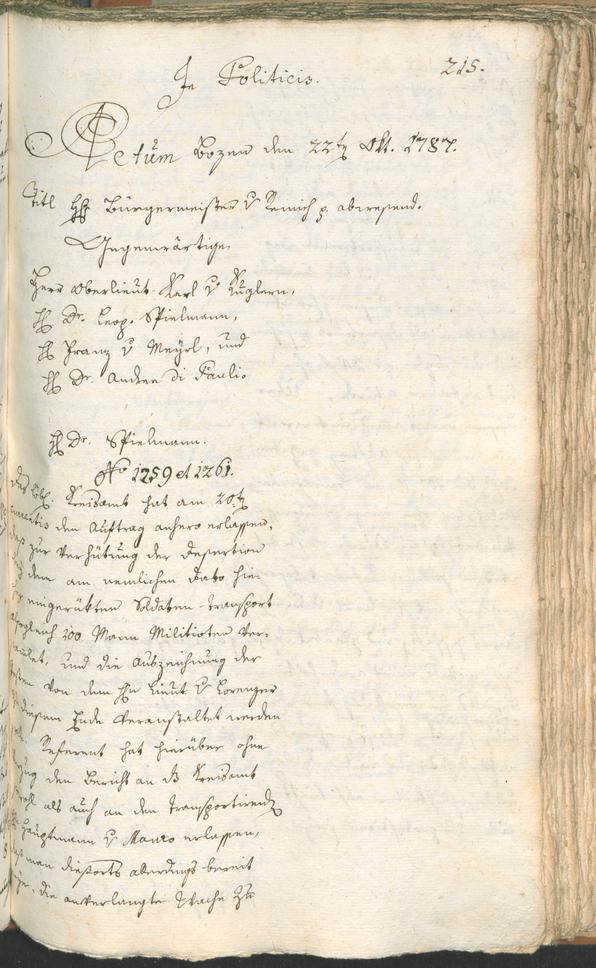 In Politicis.
215.
Actum Bozen den 22ten Okt. 1787.
Titl HH Bürgermeister v Remich p. abwesend.
Gegenwärtige,
Herr Oberlieut. Karl v Kuglern,
H Dr. Leop. Spielmann,
H Franz v Meyrl, und
H Dr. Andree Di Pauli.
H Dr. Spielmann.
No 1259 et 1261.
Das Löbl. Kreisamt hat am 20ten
den Auftrag anhero erlassen,
das zur Verhütung der Desertion
dem am nemlichen Dato hier
eingerükten Soldaten-transport
sogleich 100 Mann Militioten ver-
und die Aubzeichnung der
von dem Hn Lieut v Lorenzer
diesem Ende veranstaltet werden
Referent hat hierüber ohne
den Bericht an das Kreisamt
sowohl als auch an den transportirenden
Hauptmann v Mauro erlassen,
daß man diesorts allerdings bereit
seye, die anverlangte Wache zu